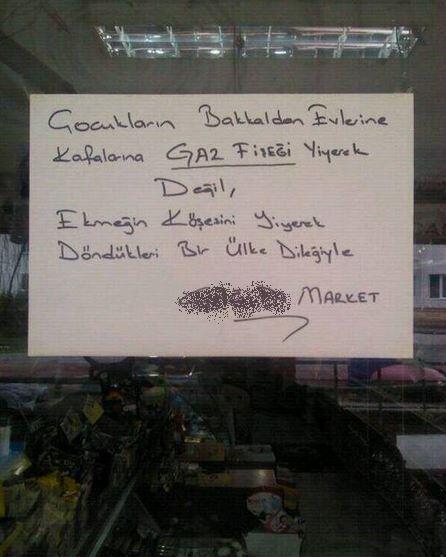 Çocukların Bakkaldan Evlerine
Kafalarına GAZ FİŞEĞİ Yiyerek
Değil,
Ekmeğin Köşesini Yiyerek
Döndükleri Bir Ülke Dileğiyle
MARKET